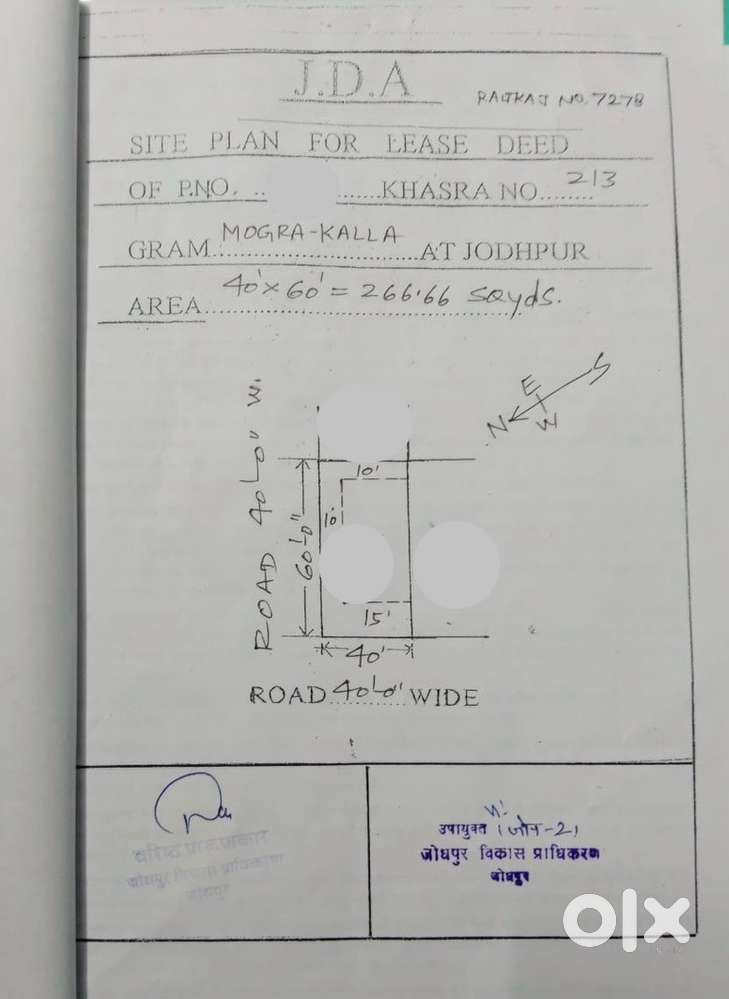 J.D.A
RAJKAJ NO. 7278
SITE PLAN FOR LEASE DEED
OF P.NO. .. ......KHASRA NO...213......
GRAM MOGRA-KALLA AT JODHPUR
AREA 40'×60' = 266.66 sqyds.
S
E
N
W
ROAD 40'-0" W.
10'
10'
60'-0"
15'
40'
ROAD 40'-0" WIDE
उपायुक्त (जोन-2)
जोधपुर विकास प्राधिकरण
जोधपुर
वरिष्ठ
जोधपुर विकास प्राधिकरण
जोधपुर
olx